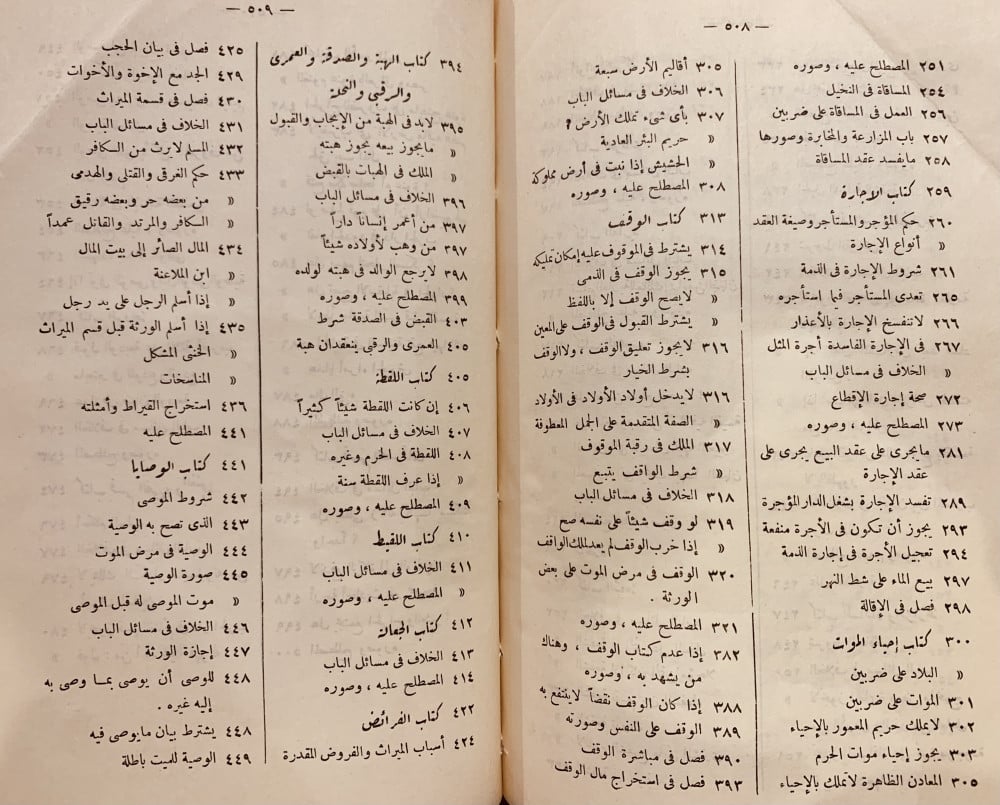 — ٥٠٨ —
٢٥١ المصطلح عليه ، وصوره
٢٥٤ المساقاة فى النخيل
٢٥٦ العمل فى المساقاة على ضربين
٢٥٧ باب المزارعة والمخابرة وصورها
٢٥٨ مايفسد عقد المساقاة
٢٥٩ كتاب الاجارة
٢٦٠ حكم المؤجر والمستأجر وصيغة العقد
« أنواع الإجارة
٢٦١ شروط الإجارة فى الذمة
٢٦٥ تعدى المستأجر فيما استأجره
٢٦٦ لاتنفسخ الإجارة بالأعذار
٢٦٧ فى الإجارة الفاسدة أجرة المثل
« الخلاف فى مسائل الباب
٢٧٢ صحة إجارة الإقطاع
٢٧٣ المصطلح عليه ، وصوره
٢٨١ مايجرى على عقد البيع يجرى على
عقد الإجارة
٢٨٩ تفسد الإجارة بشغل الدار المؤجرة
٢٩٣ يجوز أن تكون فى الأجرة منفعة
٢٩٤ تعجيل الأجرة فى إجارة الذمة
٢٩٧ بيع الماء على شط النهر
٢٩٨ فصل فى الإقالة
٣٠٠ كتاب إحياء الموات
« البلاد على ضربين
٣٠١ الموات على ضربين
٣٠٢ لايملك حريم المعمور بالإحياء
٣٠٣ يجوز إحياء موات الحرم
٣٠٥ المعادن الظاهرة لاتملك بالإحياء
٣٠٥ أقاليم الأرض سبعة
٣٠٦ الخلاف فى مسائل الباب
٣٠٧ بأى شىء تملك الأرض ؟
« حريم البئر العادية
« الحشيش إذا نبت فى أرض مملوكة
٣٠٨ المصطلح عليه ، وصوره
٣١٣ كتاب الوقف
٣١٤ يشترط فى الموقوف عليه إمكان تمليكه
٣١٥ يجوز الوقف فى الذمى
« لايصح الوقف إلا باللفظ
« يشترط القبول فى الوقف على المعين
٣١٦ لايجوز تعليق الوقف ، ولا الوقف
بشرط الخيار
٣١٦ لايدخل أولاد الأولاد فى الأولاد
« الصفة المتقدمة على الجمل المعطوفة
٣١٧ الملك فى رقبة الموقوف
« شرط الواقف يتبع
٣١٨ الخلاف فى مسائل الباب
٣١٩ لو وقف شيئاً على نفسه صح
« إذا خرب الوقف لم يعد لملك الواقف
٣٢٠ الوقف فى مرض الموت على بعض
الورثة .
٣٢١ المصطلح عليه ، وصوره
٣٨٢ إذا عدم كتاب الوقف ، وهناك
من يشهد به ، وصوره
٣٨٨ إذا كان الوقف نقضاً لاينتفع به
٣٨٩ الوقف على النفس وصورته
٣٩٠ فصل فى مباشرة الوقف
٣٩٣ فصل فى استخراج مال الوقف
— ٥٠٩ —
٣٩٤ كتاب الهبة والصدقة والعمرى
والرقبى والنحلة
٣٩٥ لابد فى الهبة من الإيجاب والقبول
« مايجوز بيعه يجوز هبته
« الملك فى الهبات بالقبض
٣٩٦ الخلاف فى مسائل الباب
٣٩٧ من أعمر إنساناً داراً
٣٩٧ من وهب لأولاده شيئاً
٣٩٨ لايرجع الوالد فى هبته لولده
٣٩٩ المصطلح عليه ، وصوره
٤٠٣ القبض فى الصدقة شرط
٤٠٥ العمرى والرقبى ينعقدان هبة
٤٠٥ كتاب اللقطة
٤٠٦ إن كانت اللقطة شيئاً كثيراً
٤٠٧ الخلاف فى مسائل الباب
٤٠٨ اللقطة فى الحرم وغيره
« إذا عرف اللقطة سنة
٤٠٩ المصطلح عليه ، وصوره
٤١٠ كتاب اللقيط
٤١١ الخلاف فى مسائل الباب
« المصطلح عليه ، وصوره
٤١٢ كتاب الجعالة
٤١٣ الخلاف فى مسائل الباب
٤١٤ المصطلح عليه ، وصوره
٤٢٢ كتاب الفرائض
٤٢٤ أسباب الميراث والفروض المقدرة
٤٢٥ فصل فى بيان الحجب
٤٢٩ الجد مع الإخوة والأخوات
٤٣٠ فصل فى قسمة الميراث
٤٣١ الخلاف فى مسائل الباب
٤٣٢ المسلم لايرث من الكافر
٤٣٣ حكم الغرقى والقتلى والهدمى
« من بعضه حر وبعضه رقيق
« الكافر والمرتد والقاتل عمداً
٤٣٤ المال الصائر إلى بيت المال
« ابن الملاعنة
« إذا أسلم الرجل على يد رجل
٤٣٥ إذا أسلم الورثة قبل قسم الميراث
« الخنثى المشكل
« المناسخات
٤٣٦ استخراج القيراط وأمثلته
٤٤١ المصطلح عليه
٤٤١ كتاب الوصايا
٤٤٢ شروط الموصى
٤٤٣ الذى تصح به الوصية
٤٤٤ الوصية فى مرض الموت
٤٤٥ صورة الوصية
« موت الموصى له قبل الموصى
٤٤٦ الخلاف فى مسائل الباب
٤٤٧ إجازة الورثة
٤٤٨ للوصى أن يوصى بما وصى به
إليه غيره .
٤٤٨ يشترط بيان مايوصى فيه
٤٤٩ الوصية للميت باطلة